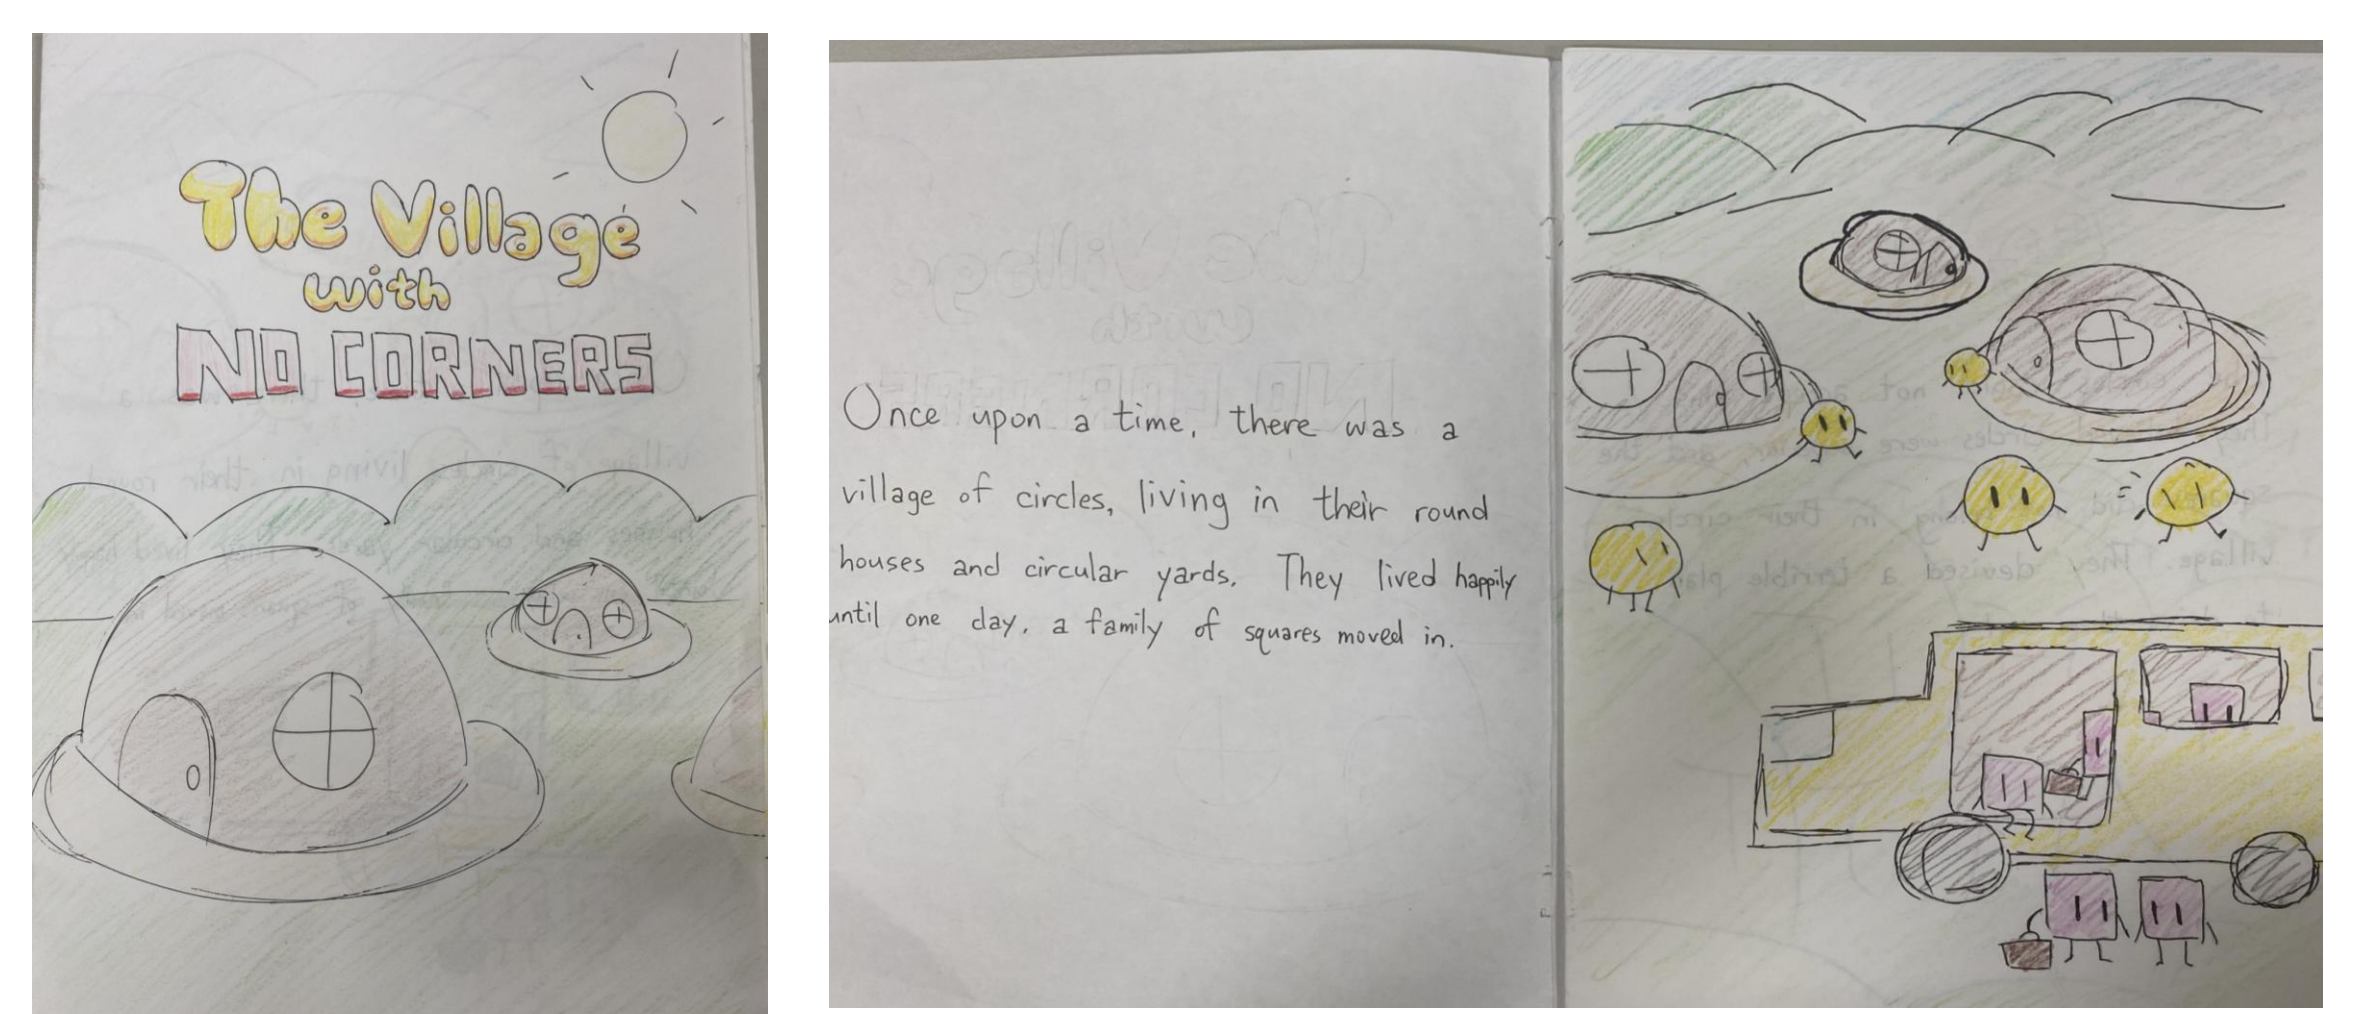 The Village
with
NO CORNERS
Once upon a time, there was a
village of circles, living in their round
houses and circular yards. They lived happily
until one day, a family of squares moved in.